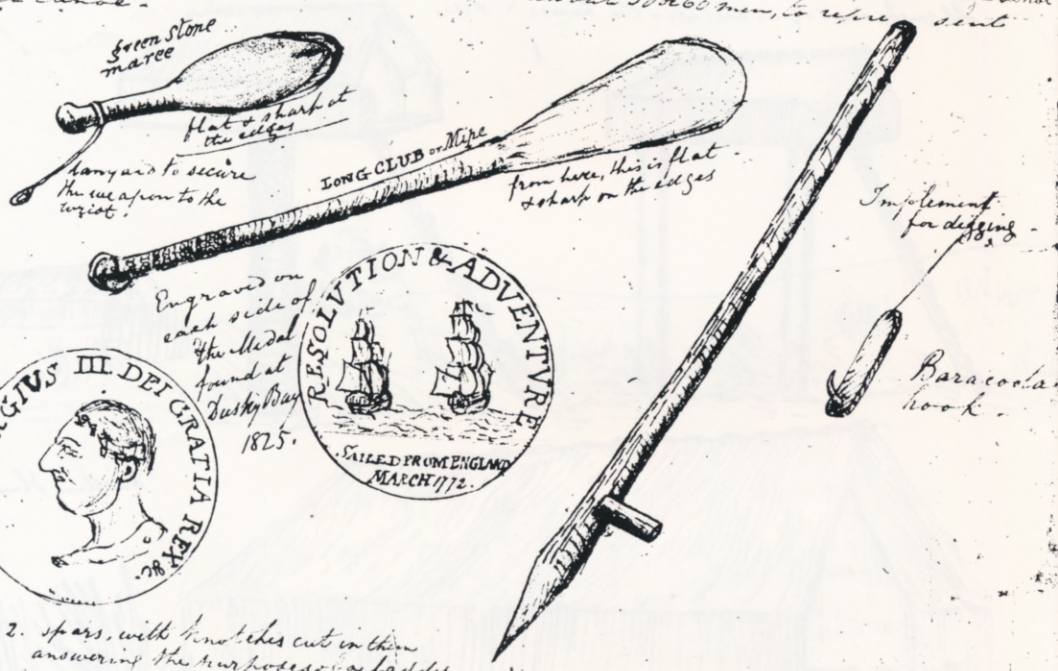 60 men, to repre sent
green stone
maree
flat & sharp at
the edges
lanyard to secure
the weapon to the
wrist.
LONG CLUB or Mipe
from here, this is flat
& sharp on the edges
Implement
for digging
Baracoota
hook.
Engraved on
each side of
the Medal
found at
Dusky Bay
1825.
RESOLVTION & ADVENTVRE
SAILED FROM ENGLAND
MARCH 1772.
GIUS III DEI GRATIA REX &c.
2. spars, with knotches cut in them
answering the purposes